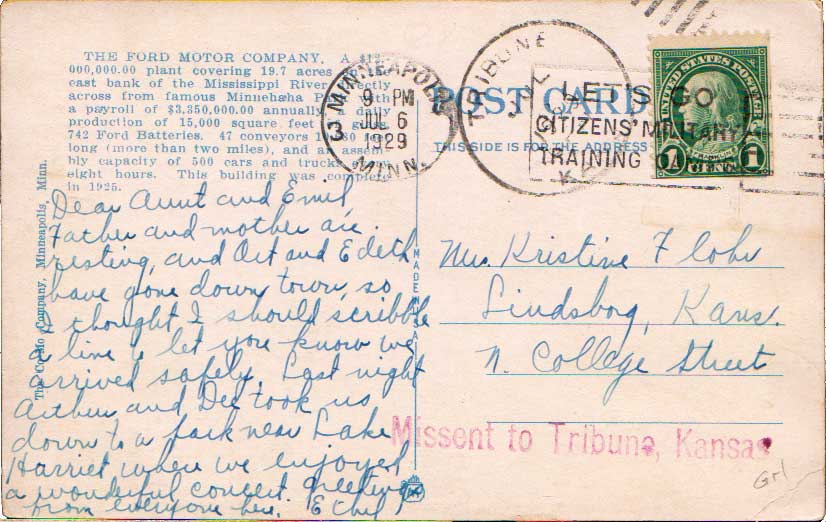 THE FORD MOTOR COMPANY. A $12,
000,000.00 plant covering 19.7 acres on the
east bank of the Mississippi River directly
across from famous Minnehaha Park with
a payroll of $3,850,000.00 annually. A daily
production of 15,000 square feet of glass,
742 Ford Batteries. 47 conveyors
long (more than two miles), and an assem-
bly capacity of 500 cars and trucks
eight hours. This building was completed
in 1925.
The Company, Minneapolis, Minn.
Dear Aunt and Emil,
Father and mother are
resting, and Art and Edith
have gone down town, so
I thought I should scribble
a line to let you know we
arrived safely. Last night
Arthur and Dee took us
down to a park near Lake
Harriet where we enjoyed
a wonderful concert. Greetings
from everyone here. Ethel
MADE IN U.S.A.
MINNEAPOLIS
3
9 PM
JUL 6
1929
MINN.
TRIBUNE
JUL
KA
LET'S GO
CITIZENS' MILITARY
TRAINING
POST CARD
THIS SIDE IS FOR THE ADDRESS
UNITED STATES POSTAGE
FRANKLIN
1 CENT 1
Mrs. Kristine Flohr
Lindsborg, Kans.
N. College Street
Missent to Tribune, Kansas